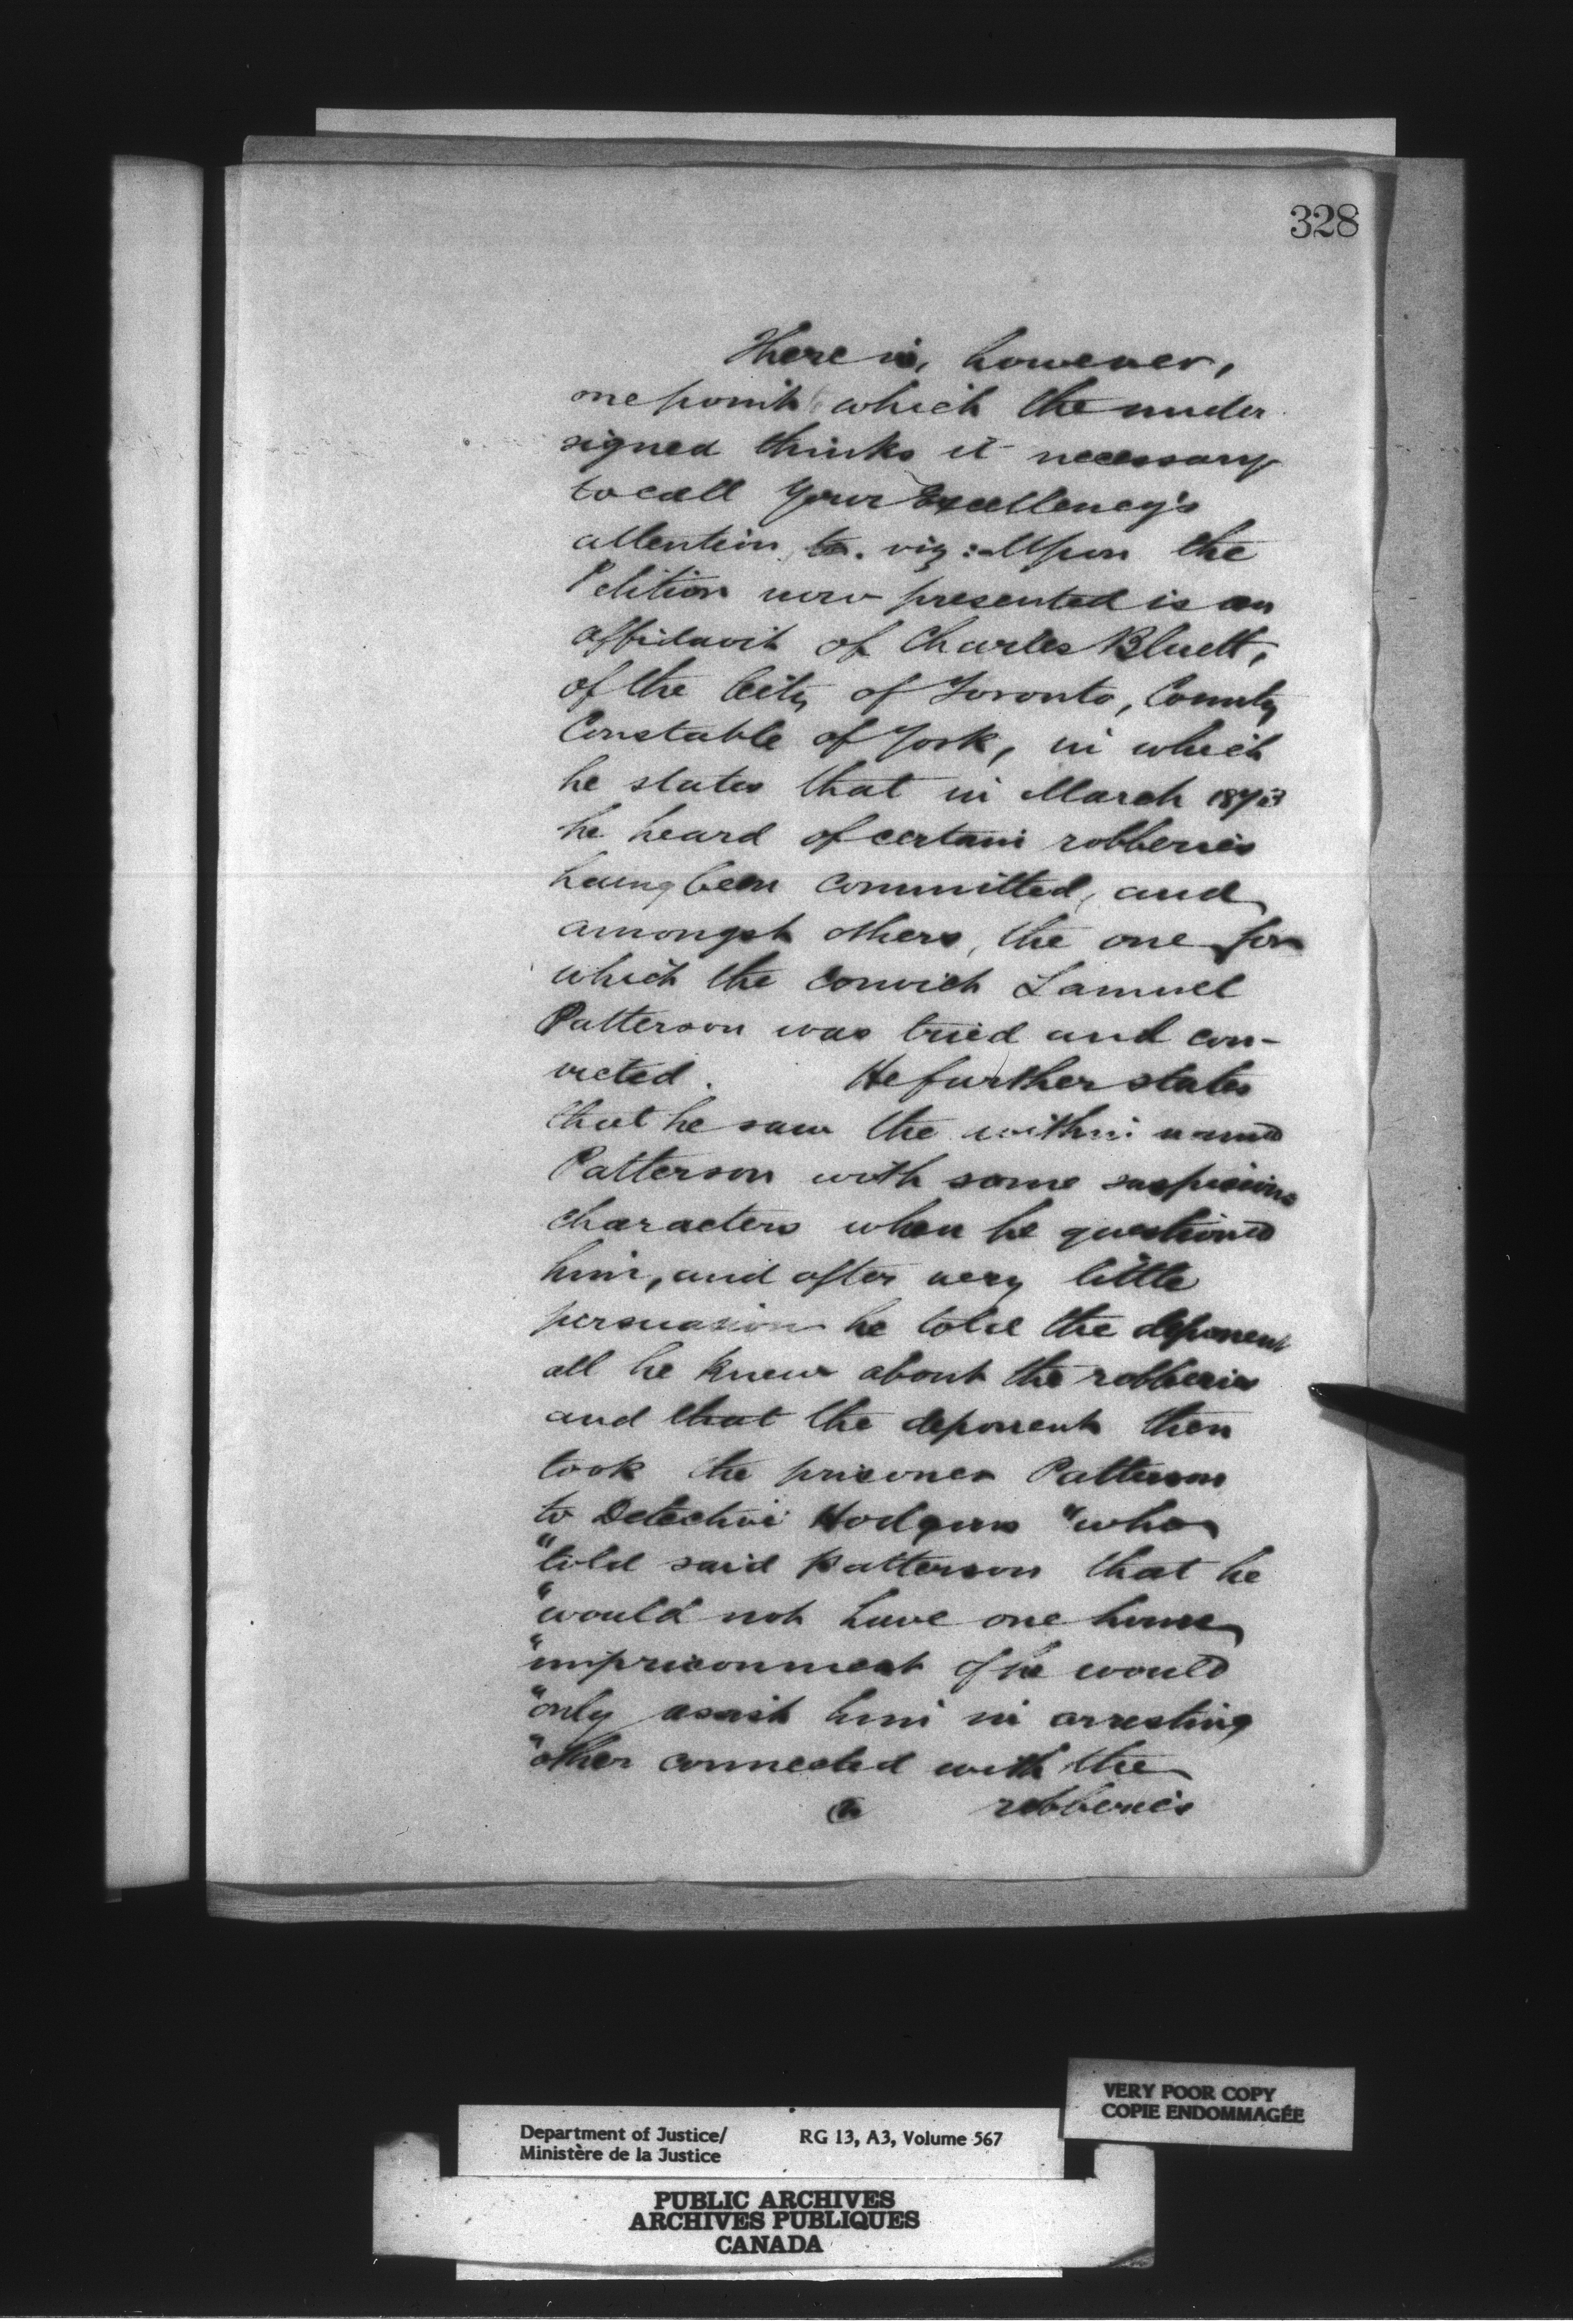 328
There is, however,
one point which the under
signed thinks it necessary
to call Your Excellency's
attention to. viz:- Upon the
Petition now presented is an
affidavit of Charles Bluett,
of the City of Toronto, County
Constable of York, in which
he states that in March
he heard of certain robberies
having been committed, and
amongst others, the one for
which the convict Samuel
Patterson was tried and con-
victed. He further states
that he saw the within named
Patterson with some suspicious
characters when he questioned
him, and after very little
persuasion he told the deponent
all he knew about the robberies
and that the deponent then
took the prisoner Patterson
to Detective Hodgins "who
"told said Patterson that he
"would not have one hours
"imprisonment if he would
"only assist him in arresting
"other connected with the
robberies
VERY POOR COPY
COPIE ENDOMMAGÉE
Department of Justice/ RG 13, A3, Volume 567
Ministère de la Justice
PUBLIC ARCHIVES
ARCHIVES PUBLIQUES
CANADA